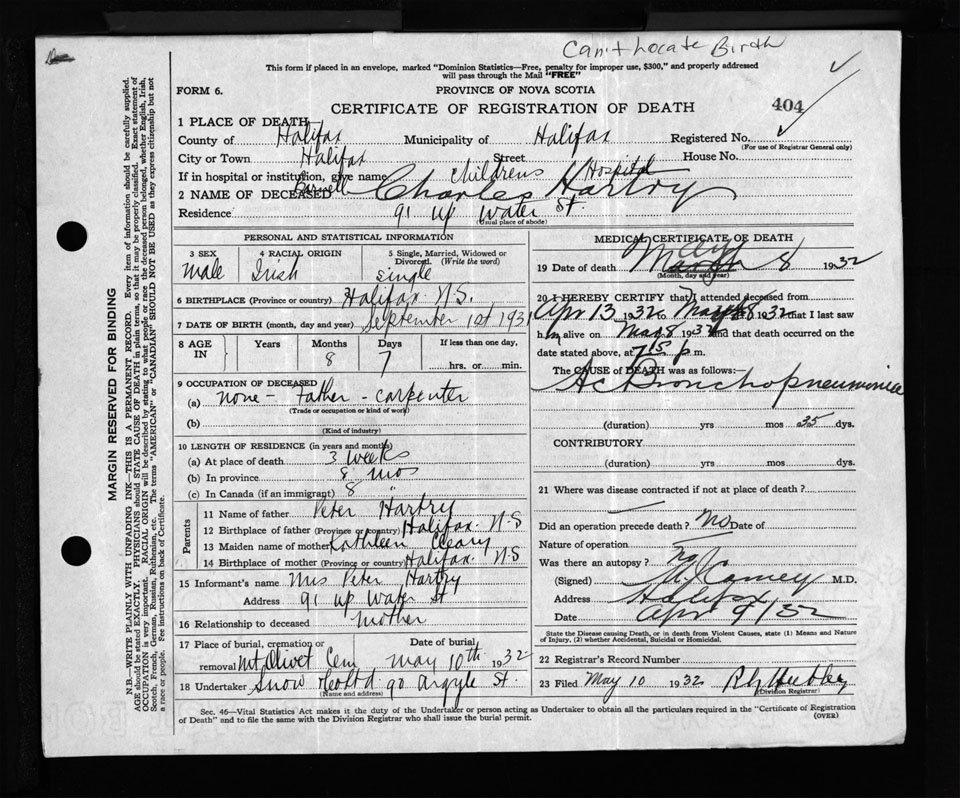 Can't Locate Birth
This form if placed in an envelope, marked "Dominion Statistics—Free, penalty for improper use, $300," and properly addressed
will pass through the Mail "FREE"
FORM 6.
PROVINCE OF NOVA SCOTIA
CERTIFICATE OF REGISTRATION OF DEATH
404
1 PLACE OF DEATH
County of Halifax Municipality of Halifax Registered No.
(For use of Registrar General only)
City or Town Halifax Street House No.
If in hospital or institution, give name Childrens Hospital
2 NAME OF DECEASED Charles Hartry
Residence 91 up Water St.
(Usual place of abode)
PERSONAL AND STATISTICAL INFORMATION
3 SEX 4 RACIAL ORIGIN 5 Single, Married, Widowed or Divorced. (Write the word)
Male Irish single
6 BIRTHPLACE (Province or country) Halifax N.S.
7 DATE OF BIRTH (month, day and year) September 1st 1931
8 AGE IN Years Months Days If less than one day,
8 7 hrs. or min.
9 OCCUPATION OF DECEASED
(a) none - father - carpenter
(Trade or occupation or kind of work)
(b)
(Kind of industry)
10 LENGTH OF RESIDENCE (in years and months)
(a) At place of death 3 weeks
(b) In province 8 mos
(c) In Canada (if an immigrant) 8 "
Parents
11 Name of father Peter Hartry
12 Birthplace of father (Province or country) Halifax N.S
13 Maiden name of mother Kathleen Cleary
14 Birthplace of mother (Province or country) Halifax N S
15 Informant's name Mrs Peter Hartry
Address 91 up Water St
16 Relationship to deceased mother
17 Place of burial, cremation or removal Mt Olivet Cem Date of burial May 10th 1932
18 Undertaker Snow & Co Ltd 90 Argyle St.
(Name and address)
MEDICAL CERTIFICATE OF DEATH
19 Date of death May 8 1932
(Month, day and year)
20 I HEREBY CERTIFY that I attended deceased from
Apr 13 1932 to May 8 1932 that I last saw
h m alive on May 8 1932 and that death occurred on
date stated above, at 7.15 p m.
The CAUSE of DEATH was as follows:—
Ac Bronchopneumonia
(duration) yrs mos 25 dys.
CONTRIBUTORY
(duration) yrs mos dys.
21 Where was disease contracted if not at place of death?
Did an operation precede death? No Date of
Nature of operation
Was there an autopsy? No
(Signed) M.D.
Address Halifax
Date Apr 9/32
State the Disease causing Death, or in death from Violent Causes, state (1) Means and Nature
of Injury, (2) whether Accidental, Suicidal or Homicidal.
22 Registrar's Record Number
23 Filed May 10 1932
(Division Registrar)
Sec. 46—Vital Statistics Act makes it the duty of the Undertaker or person acting as Undertaker to obtain all the particulars required in the "Certificate of Registration
of Death" and to file the same with the Division Registrar who shall issue the burial permit.
(OVER)
MARGIN RESERVED FOR BINDING
N.B.—WRITE PLAINLY WITH UNFADING INK—THIS IS A PERMANENT RECORD. Every item of information should be carefully supplied.
AGE should be stated EXACTLY. PHYSICIANS should STATE CAUSE OF DEATH in plain terms, so that it may be properly classified. Exact statement of
OCCUPATION is very important. RACIAL ORIGIN will be described by stating to what people or race the deceased person belonged, whether English, Irish,
Scotch, French, German, Russian, Ruthenian, etc. The terms "AMERICAN" or "CANADIAN" SHOULD NOT BE USED as they express citizenship but not
a race or people. See instructions on back of Certificate.